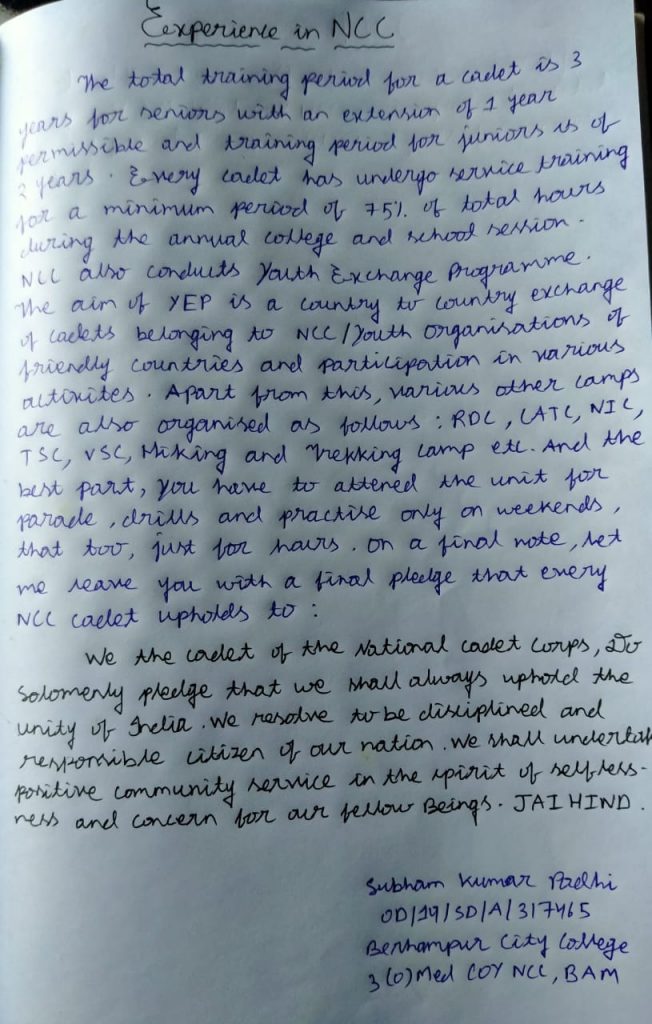 Eexperience in NCC
The total training period for a cadet is 3
years for seniors with an extension of 1 year
permissible and training period for juniors is of
2 years. Every cadet has undergo service training
for a minimum period of 75% of total hours
during the annual college and school session.
NCC also conducts Youth Exchange Programme.
The aim of YEP is a country to country exchange
of cadets belonging to NCC/Youth organisations of
friendly countries and participation in various
activites. Apart from this, various other camps
are also organised as follows: RDC, CATC, NIC,
TSC, VSC, Hiking and Trekking camp etc. And the
best part, you have to attened the unit for
parade, drills and practise only on weekends,
that too, just for hours. On a final note, let
me leave you with a final pledge that every
NCC cadet upholds to:
We the cadet of the National cadet Corps, Do
Solomenly pledge that we shall always uphold the
unity of India. We resolve to be disciplined and
responsible citizen of our nation. We shall undertak
positive community service in the spirit of selfless-
ness and concern for our fellow Beings. JAI HIND.
Subham Kumar Padhi
OD/19/SD/A/317465
Berhampur City College
3(O) Med COY NCC, BAM